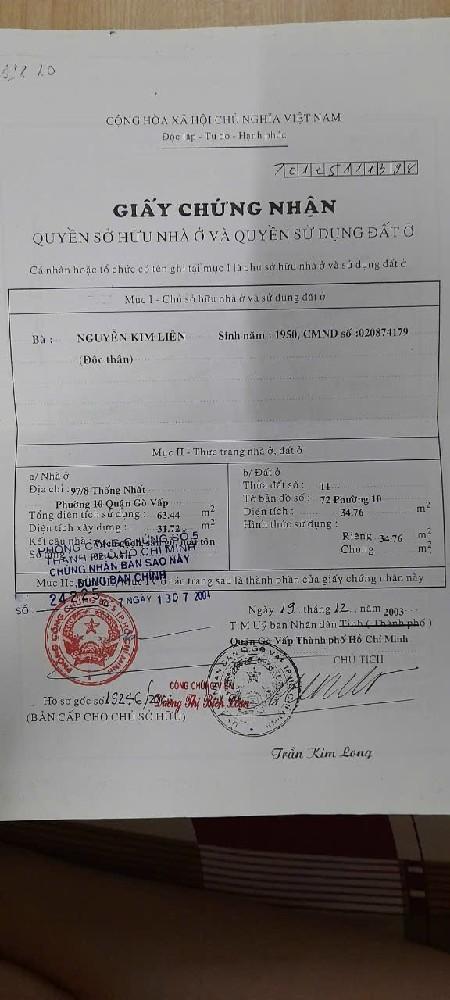 CỘNG HÒA XÃ HỘI CHỦ NGHĨA VIỆT NAM
Độc lập - Tự do - Hạnh phúc
GIẤY CHỨNG NHẬN
QUYỀN SỞ HỮU NHÀ Ở VÀ QUYỀN SỬ DỤNG ĐẤT Ở
Cá nhân hoặc tổ chức có tên ghi tại mục I là chủ sở hữu nhà ở và sử dụng đất ở
Mục I - Chủ sở hữu nhà ở và sử dụng đất ở
Bà : NGUYỄN KIM LIÊN Sinh năm : 1950, CMND số :020874179
(Độc thân)
Mục II - Thực trạng nhà ở, đất ở
a/ Nhà ở
Địa chỉ : 97/8 Thống Nhất
Phường 10 Quận Gò Vấp
Tổng diện tích sử dụng : 63.44 m2
Diện tích xây dựng : 31.72 m2
Kết cấu nhà
b/ Đất ở
Thửa đất số : 11
Tờ bản đồ số : 72 Phường 10
Diện tích : 34.76 m2
Hình thức sử dụng :
Riêng 34.76 m2
Chung m2
PHÒNG CÔNG CHỨNG SỐ 5
THÀNH PHỐ HỒ CHÍ MINH
CHỨNG NHẬN BẢN SAO NÀY
ĐÚNG BẢN CHÍNH
các trang sau là thành phần của giấy chứng nhận này
SỐ 24225 NGÀY 130 7 2004
Ngày 19 tháng 12 năm 2003
T.M Uỷ ban Nhân Dân Tỉnh ( Thành phố )
Quận Gò Vấp Thành phố Hồ Chí Minh
CHỦ TỊCH
CÔNG CHỨNG VIÊN
Hồ sơ gốc số
(BẢN CẤP CHO CHỦ SỞ HỮU)
Trần Kim Long